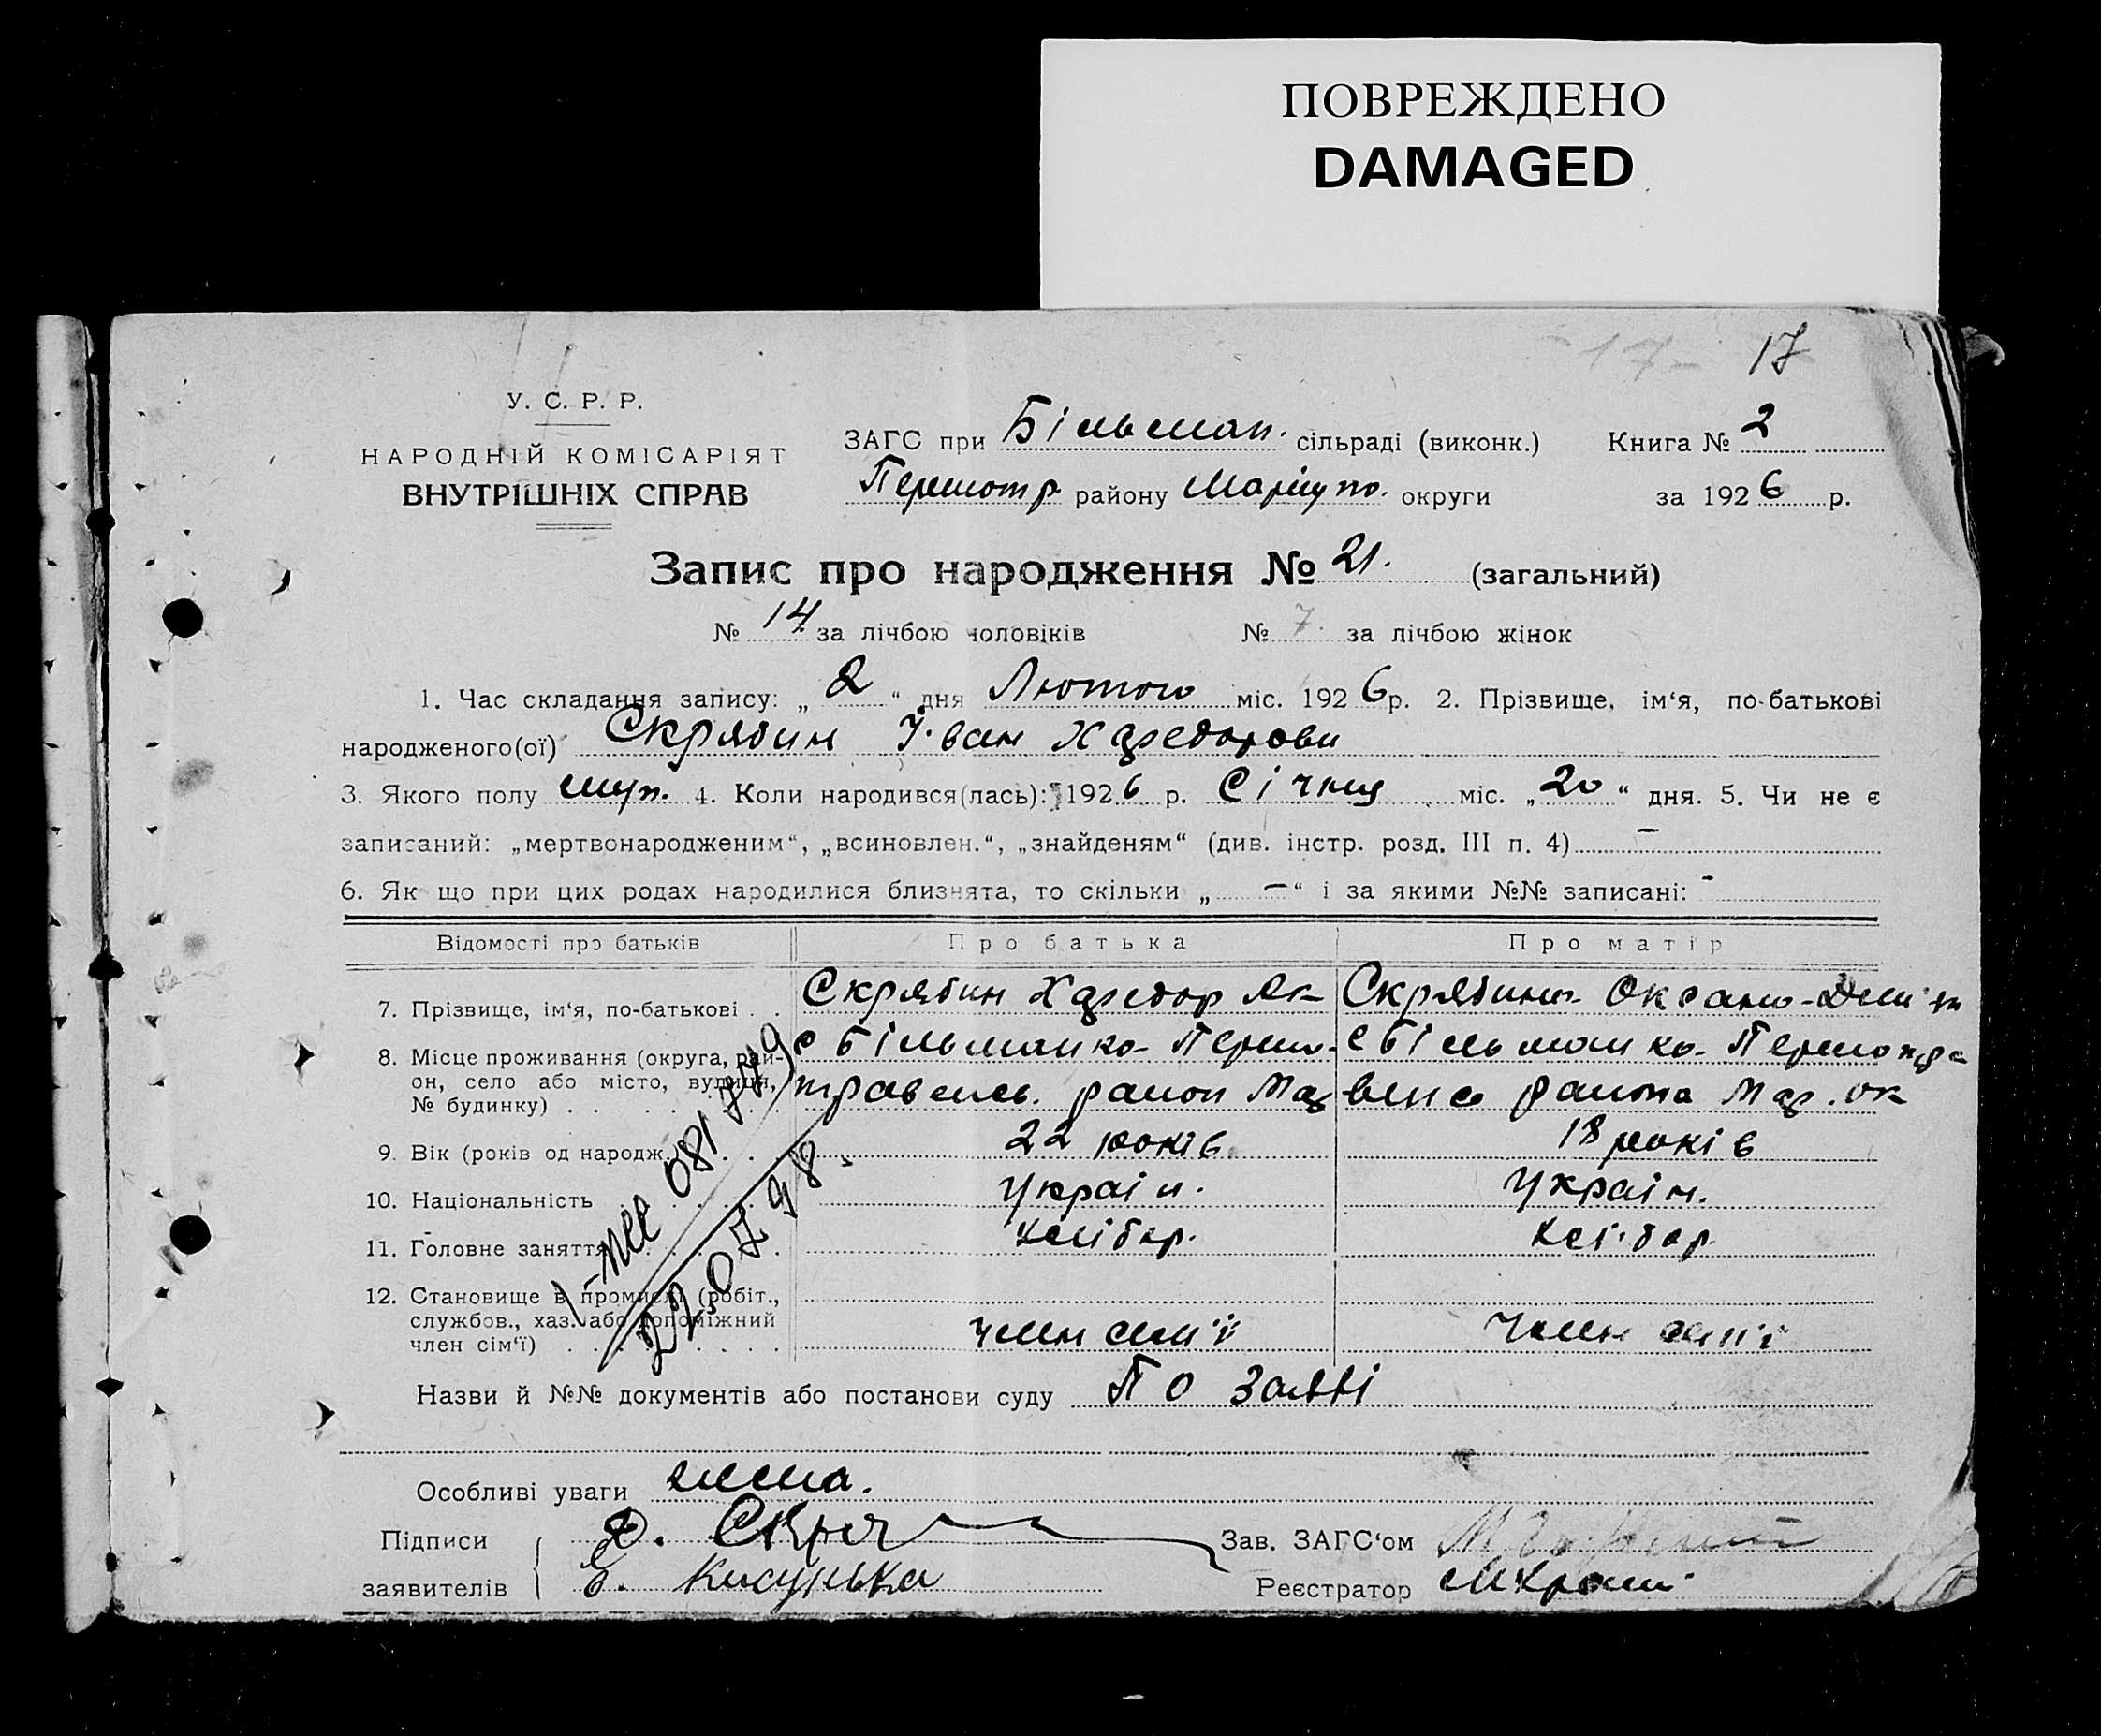 ПОВРЕЖДЕНО
DAMAGED
17
У. С. Р. Р.
НАРОДНІЙ КОМІСАРІЯТ
ВНУТРІШНІХ СПРАВ
ЗАГС при Більман. сільраді (виконк.) Книга № 2
району Маріупо. округи за 1926 р.
Запис про народження № 21. (загальний)
№ 14 за лічбою чоловіків № 7. за лічбою жінок
1. Час складання запису: „ 2 “ дня Лютого міс. 1926 р. 2. Прізвище, ім‘я, по-батькові
народженого(ої) Скрябин Іван
3. Якого полу 4. Коли народився(лась): 1926 р. Січня міс. „ 20 “ дня. 5. Чи не є
записаний: „мертвонародженим“, „всиновлен.“, „знайденям“ (див. інстр. розд. III п. 4) —
6. Як що при цих родах народилися близнята, то скільки „ — “ і за якими №№ записані: -
Відомості про батьків Про батька Про матір
7. Прізвище, ім‘я, по-батькові . . Скрябин Скрябина Оксана
8. Місце проживання (округа, рай-
он, село або місто, вулиця,
№ будинку) . . . . . . с Більманка с Більманка
район Мар. ок
9. Вік (років од народж.) . . . 22 років. 18 років
10. Національність . . . . . Україн. Україн.
11. Головне заняття . . . . . хлібор. хлібор.
12. Становище в промислі (робіт.,
службов., хаз. або допоміжний
член сім‘ї) . . . . . . . . член сем'ї член сем'ї
22.07.98
Назви й №№ документів або постанови суду По заяві
Особливі уваги нема.
Підписи
заявителів
Зав. ЗАГС‘ом
Реєстратор